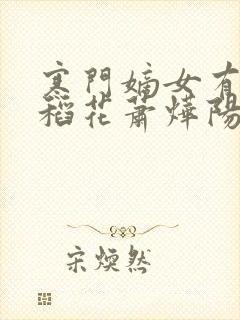 寒門嫡女有
稻花蕭燁陽
宋煥然